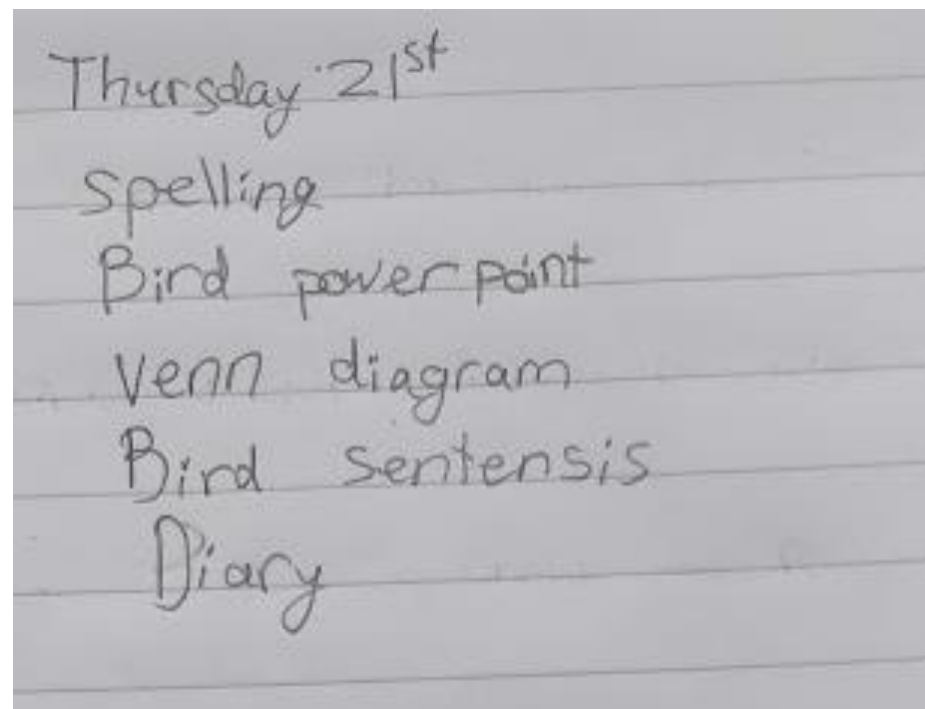 Thursday 21st
spelling
Bird power point
Venn diagram
Bird sentensis
Diary